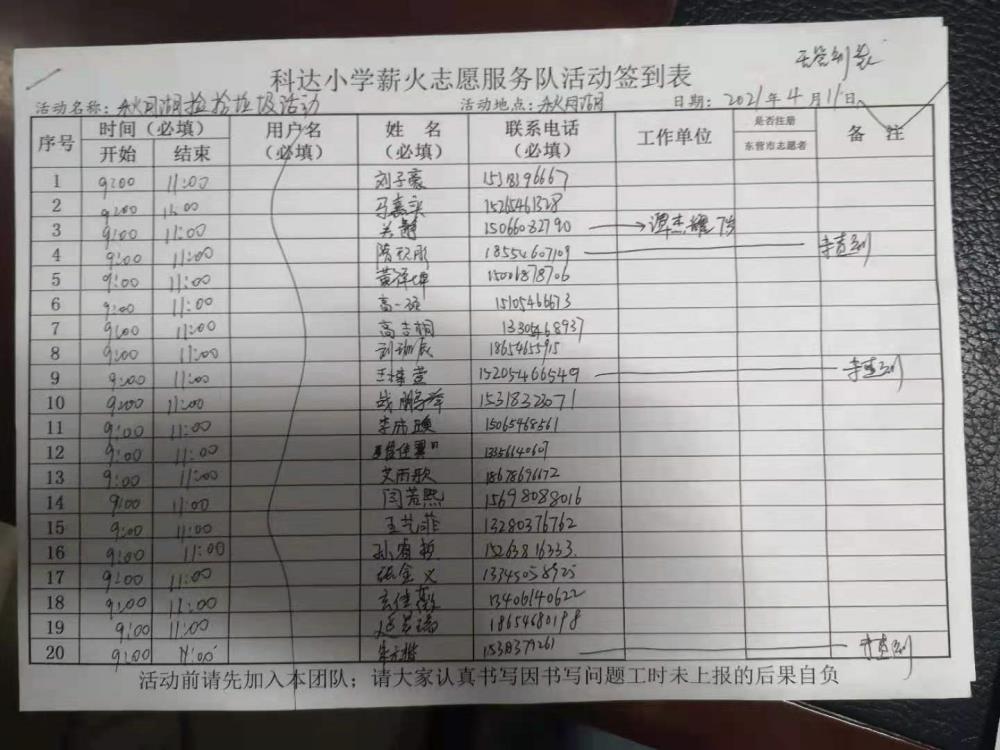 科达小学薪火志愿服务队活动签到表
活动名称：秋月湖捡拾垃圾活动 活动地点：秋月湖 日期：2021年4月11日
序号 时间（必填） 用户名（必填） 姓 名（必填） 联系电话（必填） 工作单位 是否注册东营市志愿者 备 注
开始 结束
1 9:00 11:00 刘子豪 15318396667
2 9:00 11:00 15265461328
3 9:00 11:00 关静 15066082790 → 谭杰耀 7岁
4 9:00 11:00 18554607109
5 9:00 11:00 15006878706
6 9:00 11:00 高一 15105466673
7 9:00 11:00 高吉桐 13305468937
8 9:00 11:00 18654655915
9 9:00 11:00 15205466549
10 9:00 11:00 15318323071
11 9:00 11:00 15065468561
12 9:00 11:00
13 9:00 11:00 艾雨歌 18678696672
14 9:00 11:00 闫若熙 15698088016
15 9:00 11:00 王艺菲 13280376762
16 9:00 11:00 孙睿哲 15263816333
17 9:00 11:00 张金义 13345058925
18 9:00 11:00 13406140622
19 9:00 11:00 18654680198
20 9:00 11:00
活动前请先加入本团队；请大家认真书写因书写问题工时未上报的后果自负